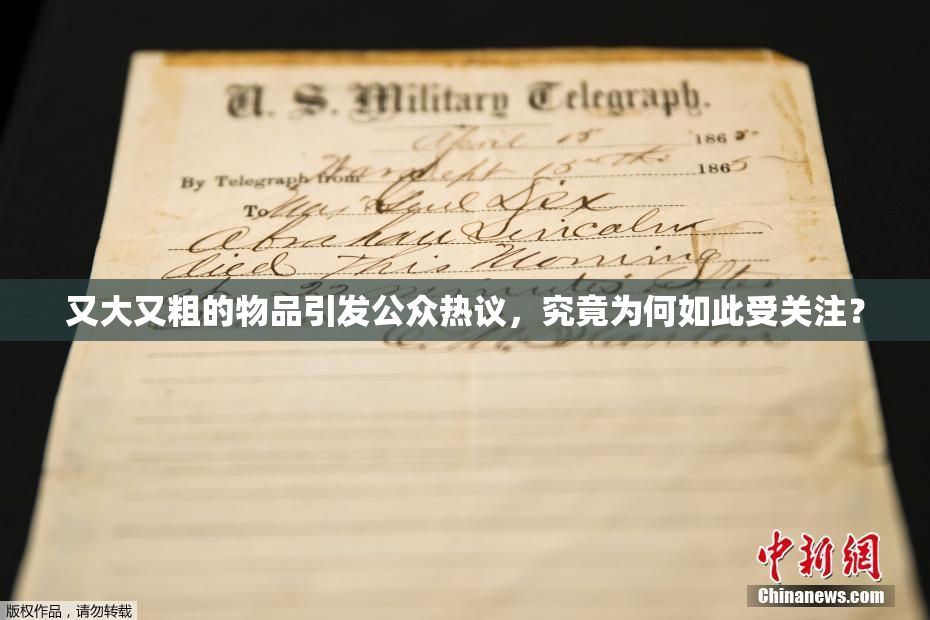 U. S. Military Telegraph.
April 15 1865
By Telegraph from War Dept 15th 1865
To Maj Genl Dix
Abraham Lincoln
died This Morning
22 minutes after
又大又粗的物品引发公众热议，究竟为何如此受关注？
E. M. Stanton
中新网
Chinanews.com
版权作品，请勿转载